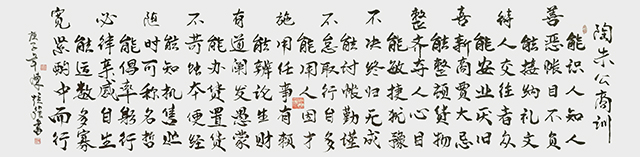 陶朱公商训
能识人知人
善恶帐目不负
能接纳礼文
待人交往者众
能安业厌旧
喜新商贾大忌
能整顿货物
整齐夺人心目
能敏捷犹豫
不决终归无成
能讨帐勤谨
不怠取行自多
能用人因才
施用任事有赖
能辩论生财
有道阐发愚蒙
能办货置货
不苛蚀本便经
能知机售贮
随时可称名哲
能倡率躬行
必律亲感自生
能运数多寡
宽紧酌中而行